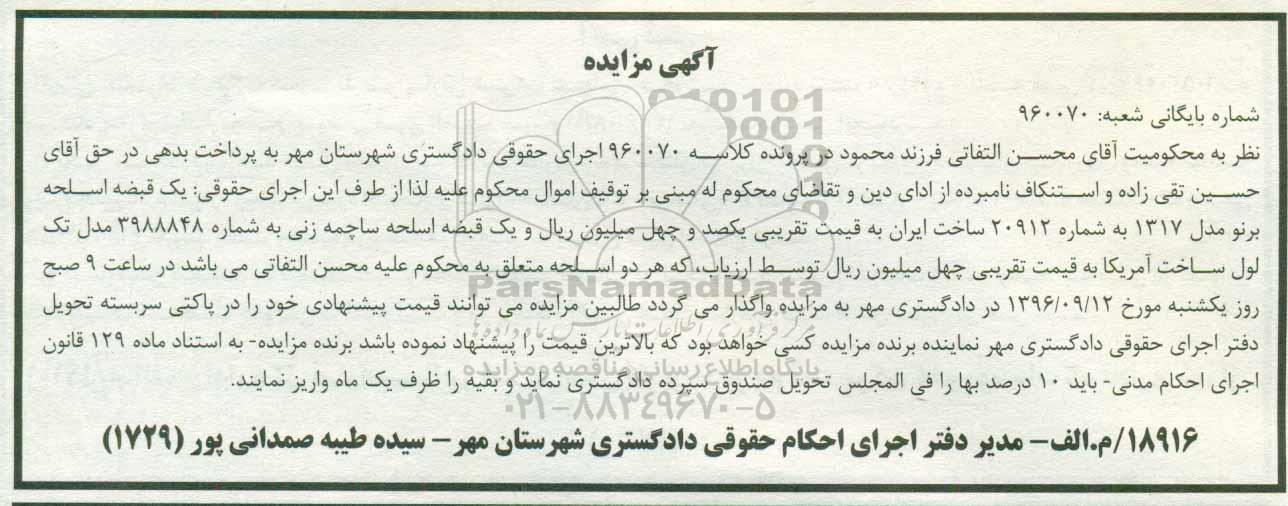 آگهی مزایده
شماره بایگانی شعبه: ۹۶۰۰۷۰
نظر به محکومیت آقای محسن التفاتی فرزند محمود در پرونده کلاسه ۹۶۰۰۷۰ اجرای حقوقی دادگستری شهرستان مهر به پرداخت بدهی در حق آقای
حسین تقی زاده و استنکاف نامبرده از ادای دین و تقاضای محکوم له مبنی بر توقیف اموال محکوم علیه لذا از طرف این اجرای حقوقی: یک قبضه اسلحه
برنو مدل ۱۳۱۷ به شماره ۲۰۹۱۲ ساخت ایران به قیمت تقریبی یکصد و چهل میلیون ریال و یک قبضه اسلحه ساچمه زنی به شماره ۳۹۸۸۸۴۸ مدل تک
لول ساخت آمریکا به قیمت تقریبی چهل میلیون ریال توسط ارزیاب، که هر دو اسلحه متعلق به محکوم علیه محسن التفاتی می باشد در ساعت ۹ صبح
روز یکشنبه مورخ ۱۳۹۶/۰۹/۱۲ در دادگستری مهر به مزایده واگذار می گردد طالبین مزایده می توانند قیمت پیشنهادی خود را در پاکتی سربسته تحویل
دفتر اجرای حقوقی دادگستری مهر نماینده برنده مزایده کسی خواهد بود که بالاترین قیمت را پیشنهاد نموده باشد برنده مزایده- به استناد ماده ۱۲۹ قانون
اجرای احکام مدنی- باید ۱۰ درصد بها را فی المجلس تحویل صندوق سپرده دادگستری نماید و بقیه را ظرف یک ماه واریز نمایند.
۱۸۹۱۶/م.الف- مدیر دفتر اجرای احکام حقوقی دادگستری شهرستان مهر- سیده طیبه صمدانی پور (۱۷۲۹)
ParsNamadData
مرکز فرآوری اطلاعات پارس نماد داده ها
پایگاه اطلاع رسانی مناقصه و مزایده
۰۲۱-۸۸۳۴۹۶۷۰-۵